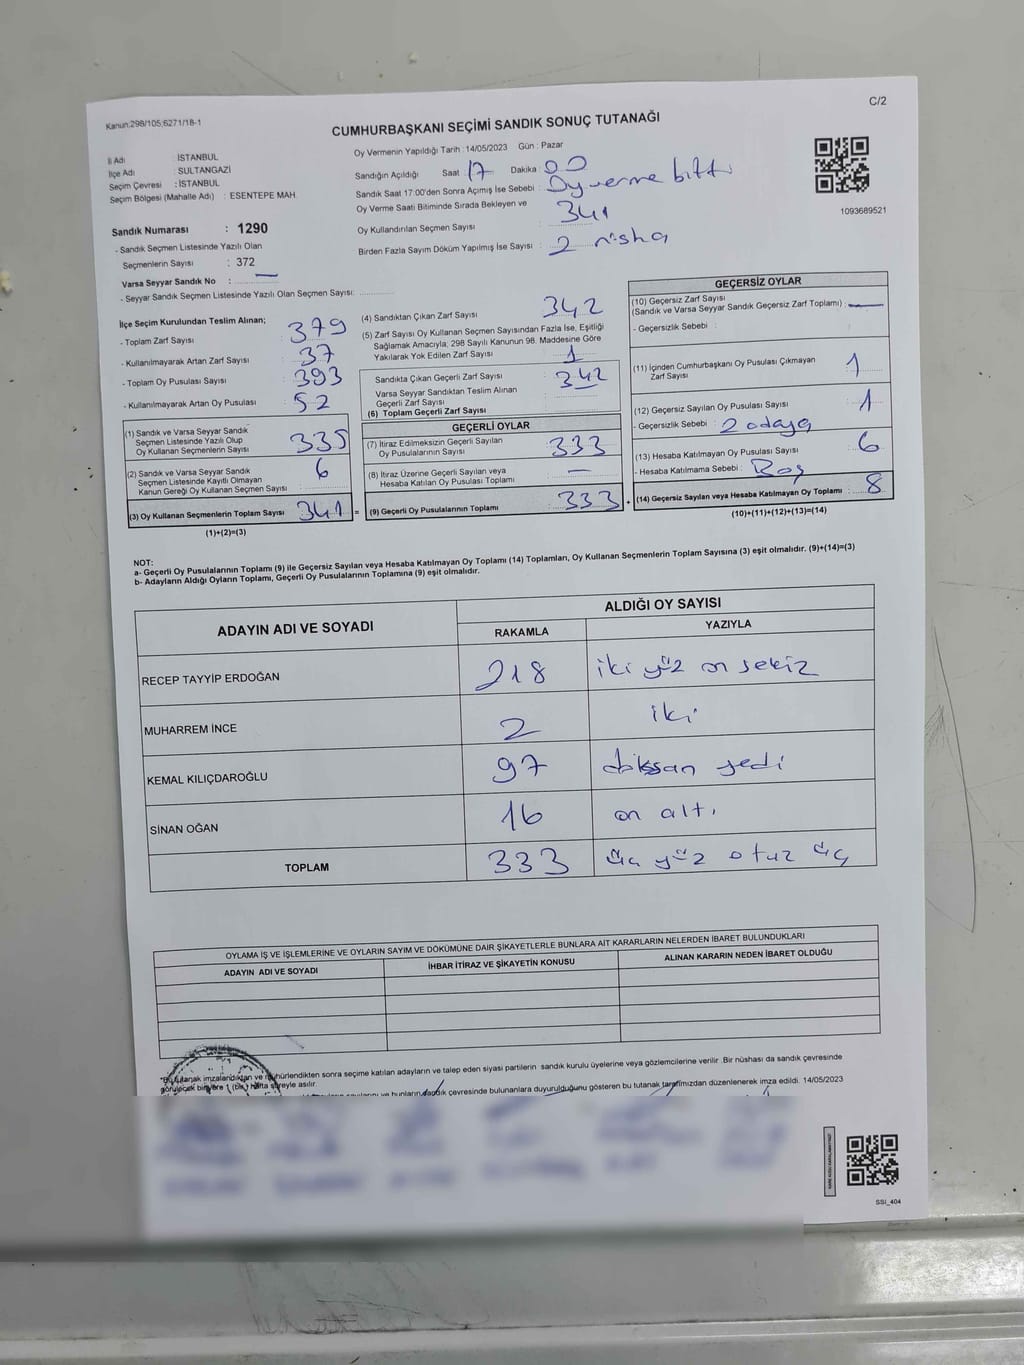 Kanun:298/105,6271/18-1
C/2
CUMHURBAŞKANI SEÇİMİ SANDIK SONUÇ TUTANAĞI
İl Adı : İSTANBUL
İlçe Adı : SULTANGAZİ
Seçim Çevresi : İSTANBUL
Seçim Bölgesi (Mahalle Adı) : ESENTEPE MAH.
Sandık Numarası : 1290
- Sandık Seçmen Listesinde Yazılı Olan
Seçmenlerin Sayısı : 372
Varsa Seyyar Sandık No : —
- Seyyar Sandık Seçmen Listesinde Yazılı Olan Seçmen Sayısı:
Oy Vermenin Yapıldığı Tarih :14/05/2023 Gün : Pazar
Sandığın Açıldığı Saat 17 Dakika : 00
Sandık Saat 17:00'den Sonra Açımış İse Sebebi : Oy verme bitti
Oy Verme Saati Bitiminde Sırada Bekleyen ve
Oy Kullandırılan Seçmen Sayısı : 341
Birden Fazla Sayım Döküm Yapılmış İse Sayısı : 2 nüsha
1093689521
İlçe Seçim Kurulundan Teslim Alınan;
- Toplam Zarf Sayısı : 379
- Kullanılmayarak Artan Zarf Sayısı : 37
- Toplam Oy Pusulası Sayısı : 393
- Kullanılmayarak Artan Oy Pusulası : 52
(1) Sandık ve Varsa Seyyar Sandık
Seçmen Listesinde Yazılı Olup
Oy Kullanan Seçmenlerin Sayısı : 335
(2) Sandık ve Varsa Seyyar Sandık
Seçmen Listesinde Kayıtlı Olmayan
Kanun Gereği Oy Kullanan Seçmen Sayısı : 6
(3) Oy Kullanan Seçmenlerin Toplam Sayısı : 341
(1)+(2)=(3)
(4) Sandıktan Çıkan Zarf Sayısı : 342
(5) Zarf Sayısı Oy Kullanan Seçmen Sayısından Fazla İse, Eşitliği
Sağlamak Amacıyla, 298 Sayılı Kanunun 98. Maddesine Göre
Yakılarak Yok Edilen Zarf Sayısı : 1
Sandıkta Çıkan Geçerli Zarf Sayısı : 342
Varsa Seyyar Sandıktan Teslim Alınan
Geçerli Zarf Sayısı
(6) Toplam Geçerli Zarf Sayısı
GEÇERLİ OYLAR
(7) İtiraz Edilmeksizin Geçerli Sayılan
Oy Pusulalarının Sayısı : 333
(8) İtiraz Üzerine Geçerli Sayılan veya
Hesaba Katılan Oy Pusulası Toplamı : —
(9) Geçerli Oy Pusulalarının Toplamı : 333
GEÇERSİZ OYLAR
(10) Geçersiz Zarf Sayısı
(Sandık ve Varsa Seyyar Sandık Geçersiz Zarf Toplamı) : —
- Geçersizlik Sebebi :
(11) İçinden Cumhurbaşkanı Oy Pusulası Çıkmayan
Zarf Sayısı : 1
(12) Geçersiz Sayılan Oy Pusulası Sayısı : 1
- Geçersizlik Sebebi : 2
(13) Hesaba Katılmayan Oy Pusulası Sayısı : 6
- Hesaba Katılmama Sebebi : Boş
(14) Geçersiz Sayılan veya Hesaba Katılmayan Oy Toplamı : 8
(10)+(11)+(12)+(13)=(14)
NOT:
a- Geçerli Oy Pusulalarının Toplamı (9) ile Geçersiz Sayılan veya Hesaba Katılmayan Oy Toplamı (14) Toplamları, Oy Kullanan Seçmenlerin Toplam Sayısına (3) eşit olmalıdır. (9)+(14)=(3)
b- Adayların Aldığı Oyların Toplamı, Geçerli Oy Pusulalarının Toplamına (9) eşit olmalıdır.
ADAYIN ADI VE SOYADI
ALDIĞI OY SAYISI
RAKAMLA YAZIYLA
RECEP TAYYİP ERDOĞAN 218 iki yüz on sekiz
MUHARREM İNCE 2 iki
KEMAL KILIÇDAROĞLU 97 doksan yedi
SİNAN OĞAN 16 on altı
TOPLAM 333 üç yüz otuz üç
OYLAMA İŞ VE İŞLEMLERİNE VE OYLARIN SAYIM VE DÖKÜMÜNE DAİR ŞİKAYETLERLE BUNLARA AİT KARARLARIN NELERDEN İBARET BULUNDUKLARI
ADAYIN ADI VE SOYADI İHBAR İTİRAZ VE ŞİKAYETİN KONUSU ALINAN KARARIN NEDEN İBARET OLDUĞU
*Bu tutanak imzalandıktan ve mühürlendikten sonra seçime katılan adayların ve talep eden siyasi partilerin sandık kurulu üyelerine veya gözlemcilerine verilir .Bir nüshası da sandık çevresinde
görülecek bir yere 1 (bir) hafta süreyle asılır.
sandık çevresinde bulunanlara duyurulduğunu gösteren bu tutanak tarafımızdan düzenlenerek imza edildi. 14/05/2023
SSİ_404